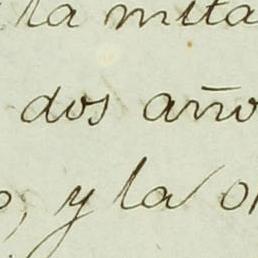 la mita
dos año
o, y la o